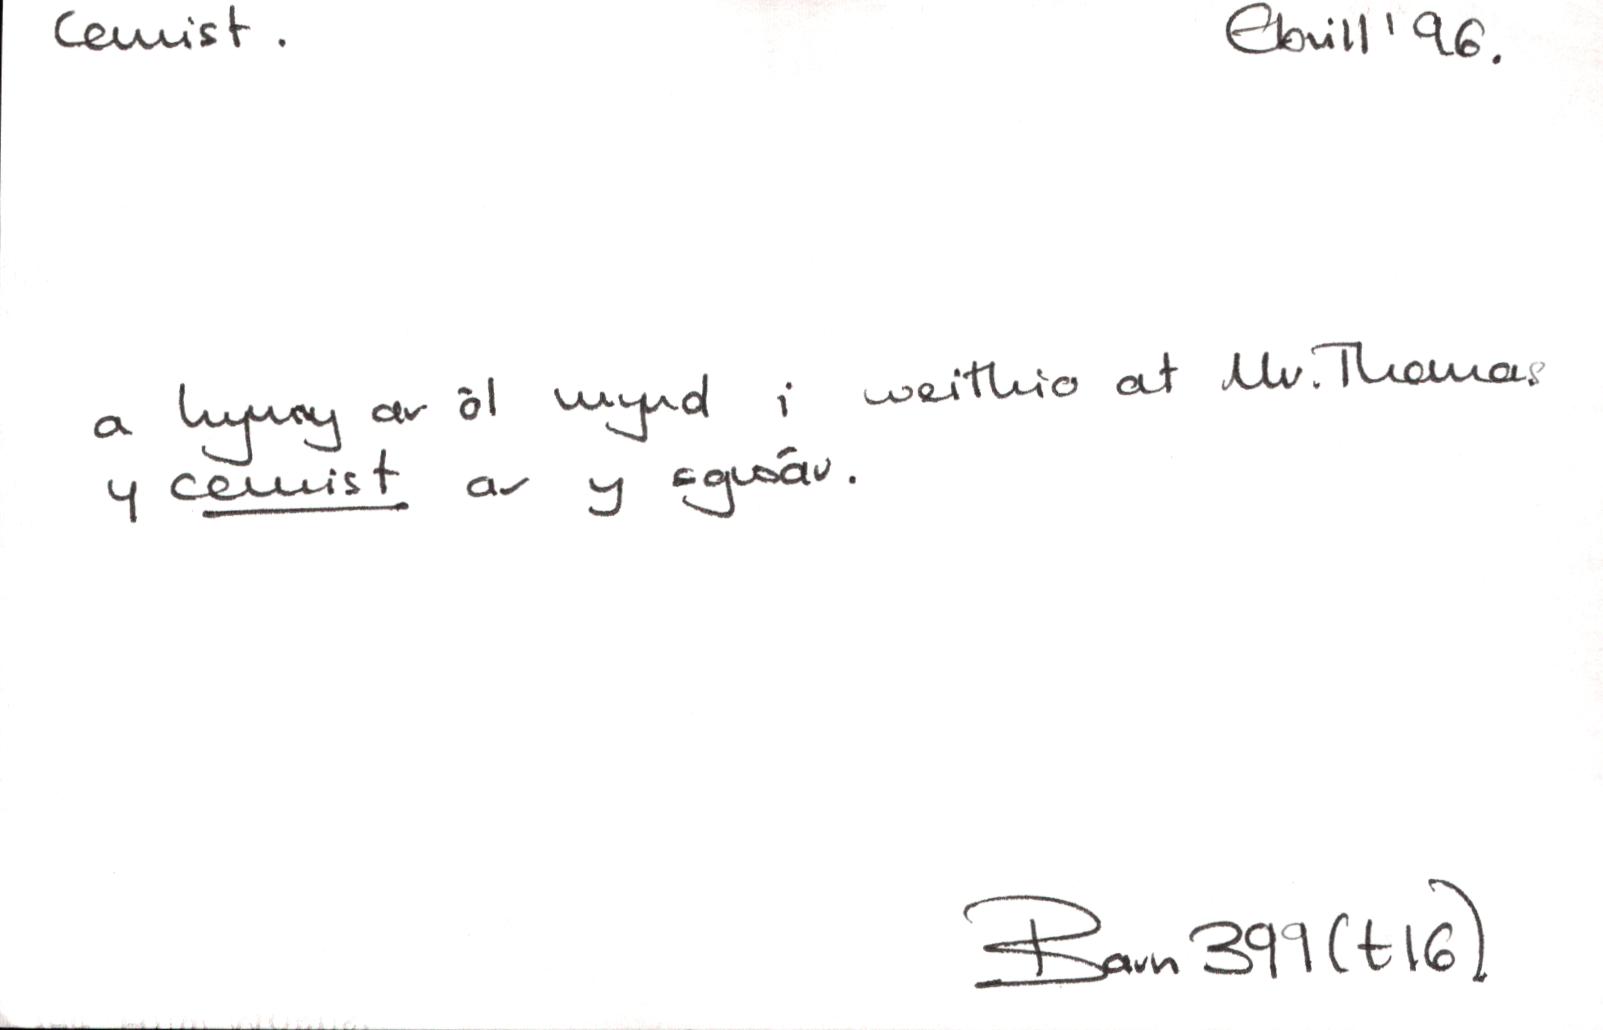 cemist. Ebrill '96.
a hynny ar ôl mynd i weithio at Mr. Thomas
y cemist ar y sgwâr.
Barn 399 (t16)